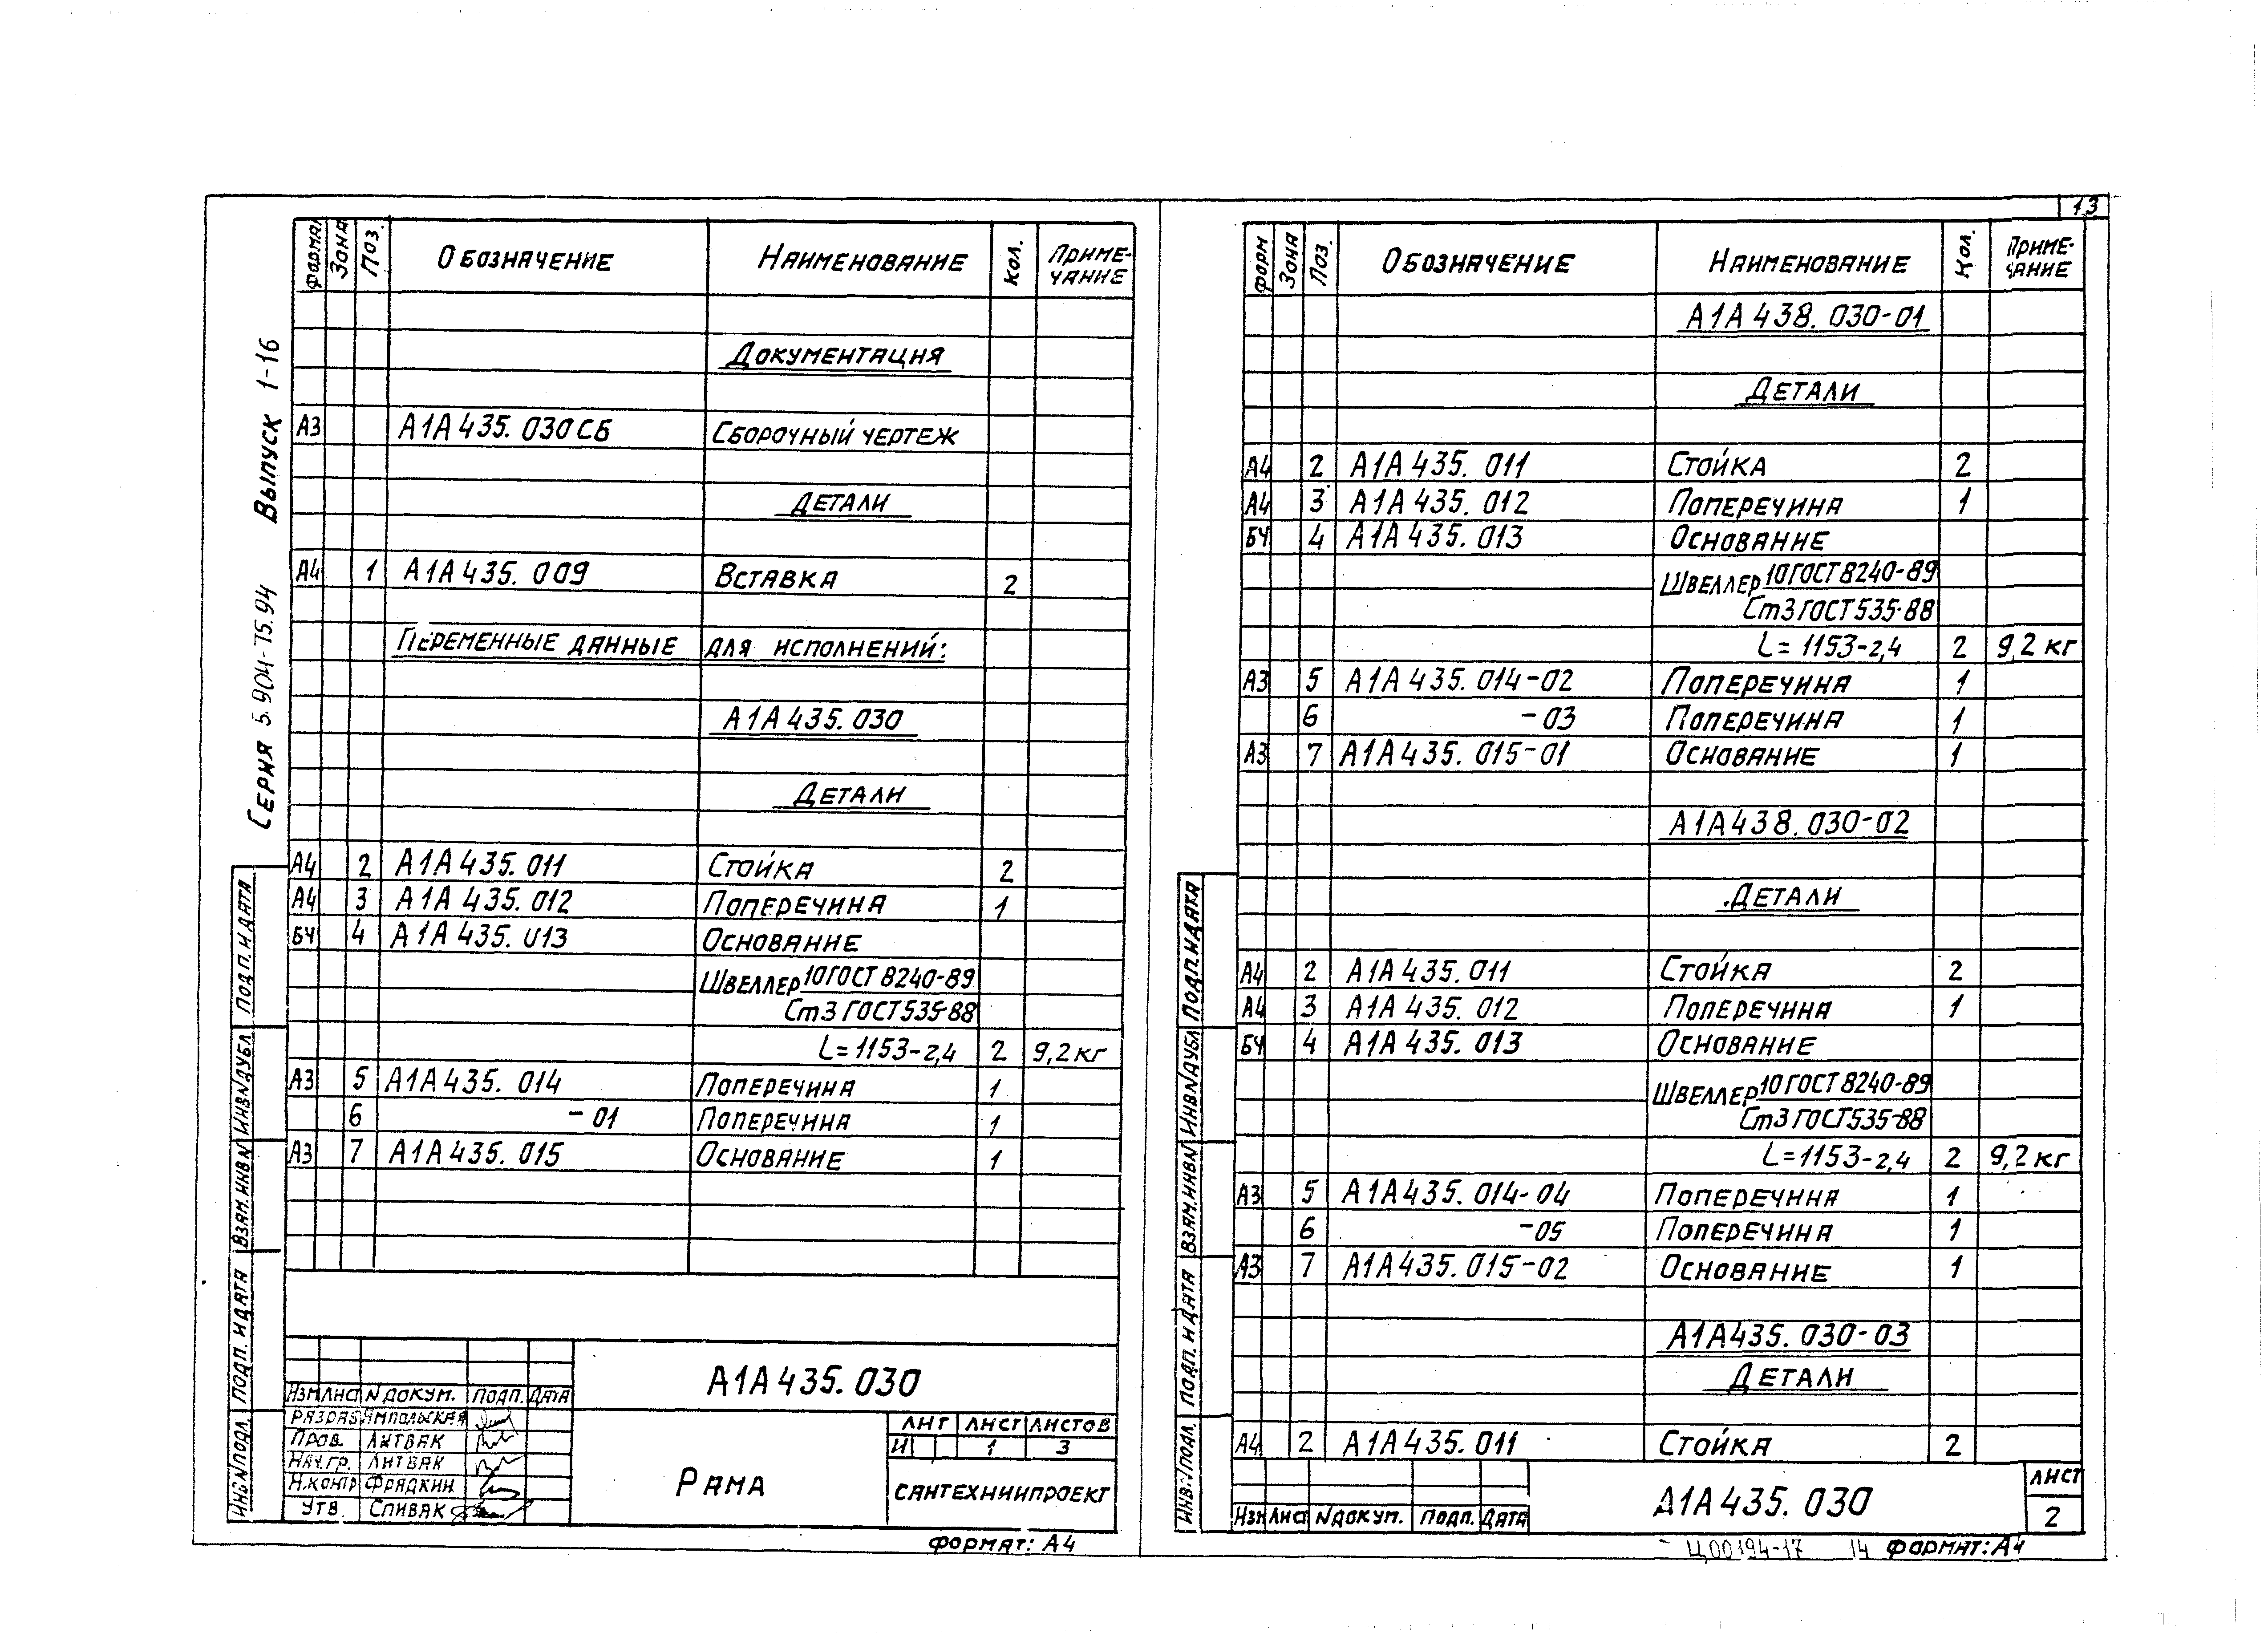 13
Серия 5.904-75.94 Выпуск 1-16
Формат Зона Поз. Обозначение Наименование Кол. Примечание
Документация
А3 А1А435.030СБ Сборочный чертеж
Детали
А4 1 А1А435.009 Вставка 2
Переменные данные для исполнений:
А1А435.030
Детали
А4 2 А1А435.011 Стойка 2
А4 3 А1А435.012 Поперечина 1
БЧ 4 А1А435.013 Основание
Швеллер 10 ГОСТ 8240-89
Ст3 ГОСТ 535-88
L=1153-2,4 2 9,2 кг
А3 5 А1А435.014 Поперечина 1
6 -01 Поперечина 1
А3 7 А1А435.015 Основание 1
Изм Лист N докум. Подп. Дата
Разраб Ямпольская
Пров. Литвак
Нач.гр. Литвак
Н.контр Фрядкин
Утв. Спивак
А1А435.030
Рама
Лит Лист Листов
И 1 3
Сантехниипроект
Формат: А4
Инв.N подл. Подп. и дата Взам.инв.N Инв.N дубл. Подп. и дата
Форм Зона Поз. Обозначение Наименование Кол. Примечание
А1А438.030-01
Детали
А4 2 А1А435.011 Стойка 2
А4 3 А1А435.012 Поперечина 1
БЧ 4 А1А435.013 Основание
Швеллер 10 ГОСТ 8240-89
Ст3 ГОСТ 535-88
L=1153-2,4 2 9,2 кг
А3 5 А1А435.014-02 Поперечина 1
6 -03 Поперечина 1
А3 7 А1А435.015-01 Основание 1
А1А438.030-02
Детали
А4 2 А1А435.011 Стойка 2
А4 3 А1А435.012 Поперечина 1
БЧ 4 А1А435.013 Основание
Швеллер 10 ГОСТ 8240-89
Ст3 ГОСТ 535-88
L=1153-2,4 2 9,2 кг
А3 5 А1А435.014-04 Поперечина 1
6 -05 Поперечина 1
А3 7 А1А435.015-02 Основание 1
А1А435.030-03
Детали
А4 2 А1А435.011 Стойка 2
Изм Лист N докум. Подп. Дата
А1А435.030
Лист
2
Инв.N подл. Подп. и дата Взам.инв.N Инв.N дубл. Подп. и дата
Ц00194-17 14 Формат: А4